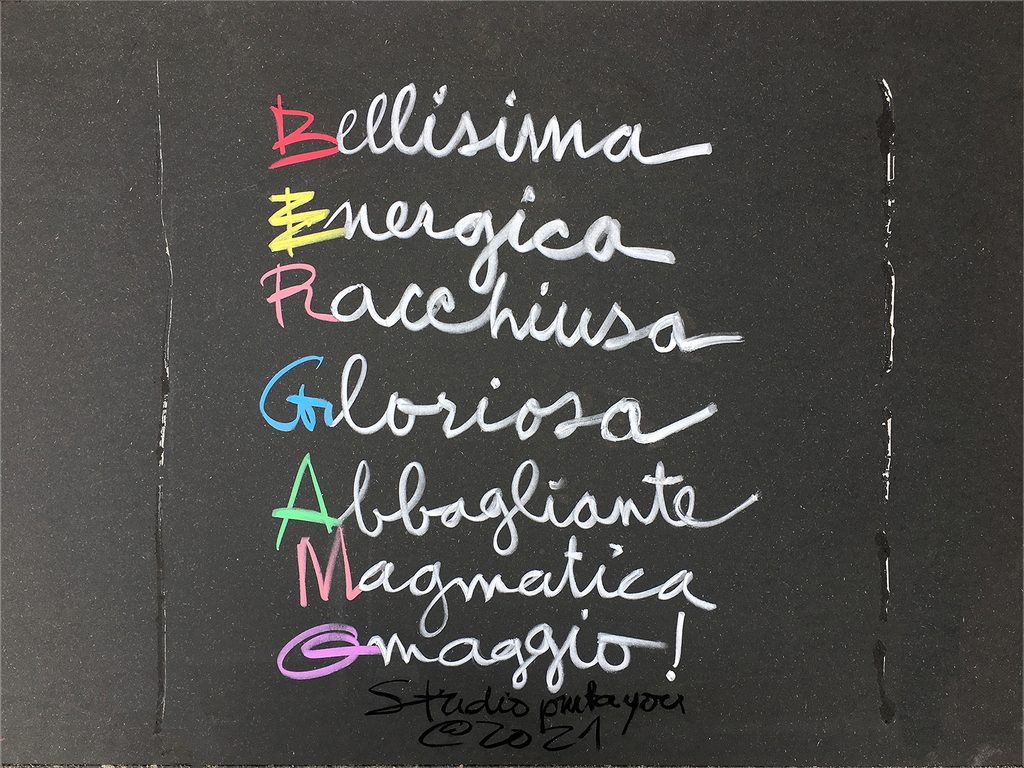 Bellisima
Energica
Racchiusa
Gloriosa
Abbagliante
Magmatica
Omaggio!
Studio
©2021